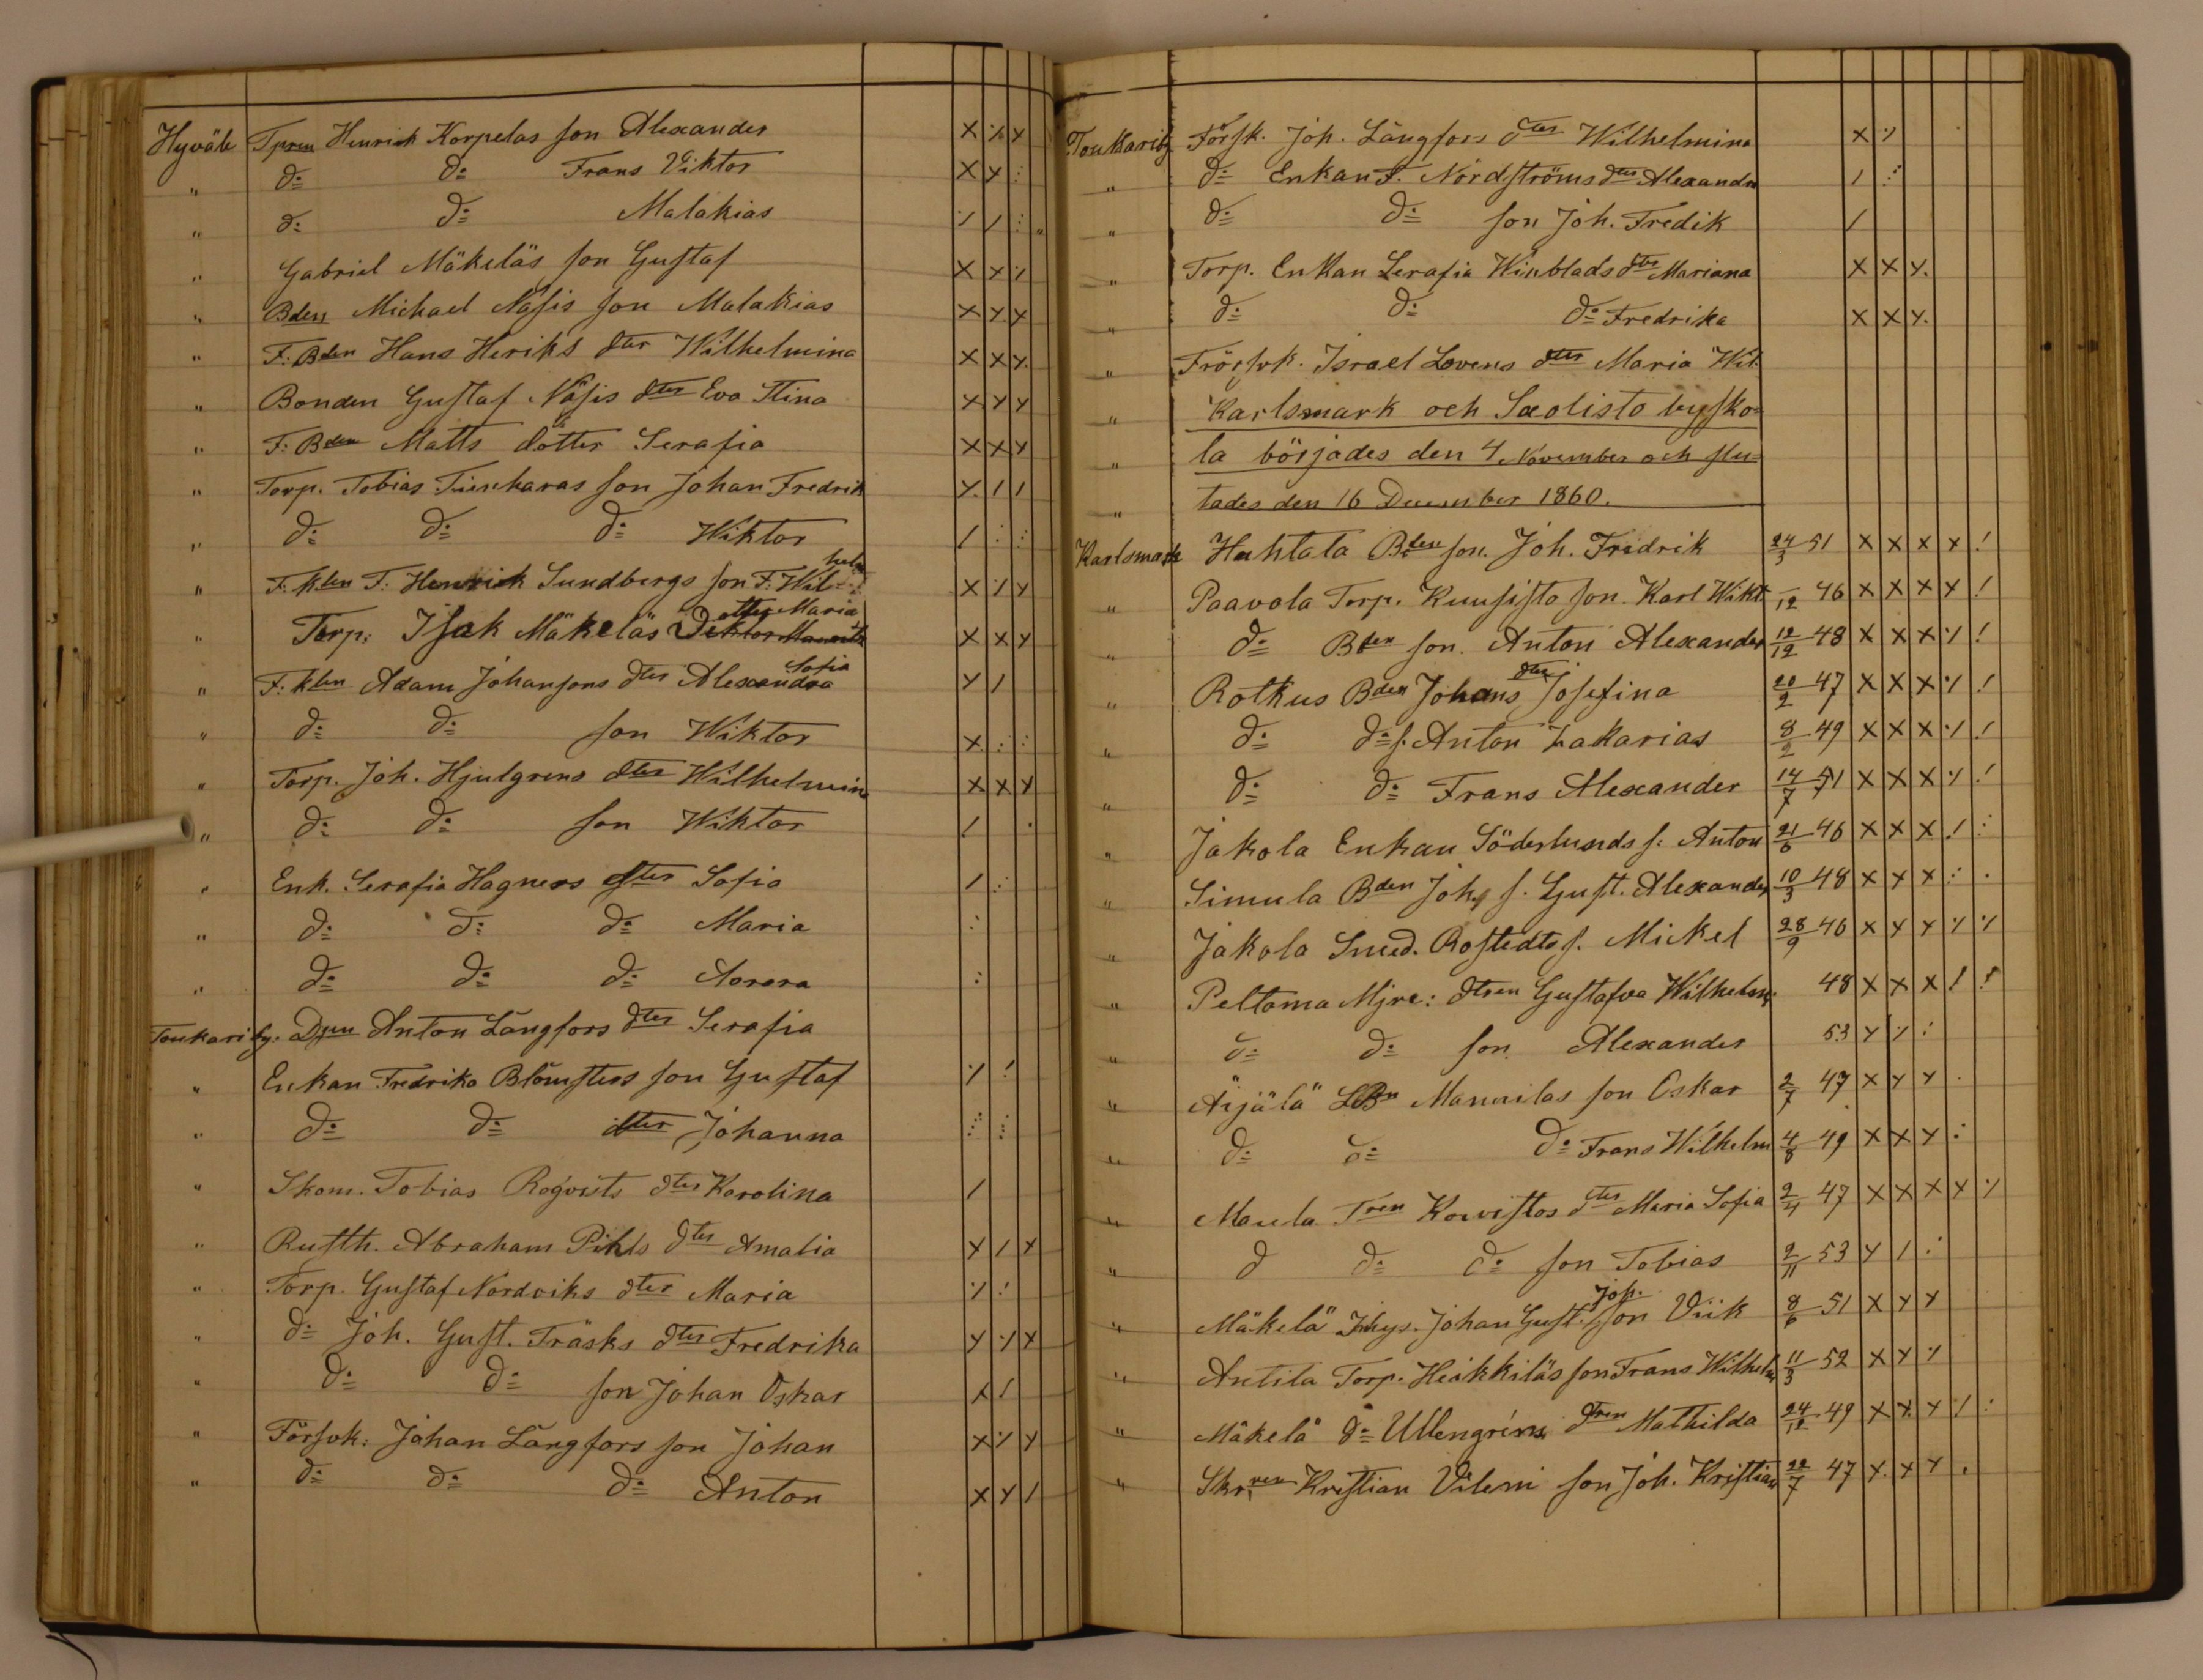 Hyvälä Tpren Henrik Korpelas son Alexander X ./. X
" d:o d:o Frans Viktor X X :
" d:o d:o Malakias ·/ / : "
" Gabriel Mäkeläs son Gustaf X X ·/
" Bden Michael Näsis son Malakias X X X
" F: Bden Hans Heriks dter Wilhelmina X X X
" Bonden Gustaf Näsis dter Eva Stina X X X
" F: Bden Matts dotter Serafia X X X
" Torp. Tobias Tienharas son Johan Fredrik X / /
" d:o d:o d:o Wiktor / : :
" F. kten F: Henrik Sundbergs son F: Wilhelm X ·/ X
" Torp: Isak Mäkeläs Dotter Maria X X X
" F: kten Adam Johansons dter Alexandra Sofia X /
" d:o d:o son Wiktor X : :
" Torp. Joh. Hjulgrens dter Wilhelmin X X X
" d:o d:o son Wiktor / .
" Enk. Serafia Hagners dter Sofia / :
" d:o d:o d:o Maria :
" d:o d:o d:o Aorora :
Toukari by. Anton Långfors dter Serafia
" Enkan Fredrika Blomsters son Gustaf ·/ !
" d:o d:o dter Johanna : :
" Skom. Tobias Roqvists dter Karolina /
" Rustth. Abraham Pihls dter Amalia X / X
" Torp. Gustaf Nordviks dter Maria ·/ !
" d:o Joh. Gust. Träsks dter Fredrika X ·/ X
" d:o d:o son Johan Oskar X /
" Försvk: Johan Långfors son Johan X ·/ X
" d:o d:o d:o Anton X X /
Toukariby Försk. Joh. Långfors dter Wilhelmina X ·/
" d:o Enkan F. Nordströms dter Alexandra / :
" d:o d:o son Joh. Fredik /
" Torp. Enkan Serafia Winblads dter Mariana X X X.
" d:o d:o d:o Fredrika X X X.
" Frörsvk. Israel Lovens dter Maria Wil.
" Karlsmark och Saolisto bysko=
" la börjades den 4 November och slu=
" tades den 16 December 1860.
Karlsmark Huhtala Bden son. Joh. Fredrik 24/3 51 X X X X !
" Paavola Torp. Kuusisto son. Karl Wikt. –/12 46 X X X X !
" d:o Bden son. Anton Alexander 12/12 48 X X X ·/ !
" Rotkus Bden Johans dter Josefina 20/2 47 X X X ·/ !
" d:o d:o s. Anton Zakarias 8/2 49 X X X ·/ !
" d:o d:o Frans Alexander 14/7 51 X X X ·/ !
" Jakola Enkan Söderlunds s: Anton 21/6 46 X X X ! :
" Simula Bden Johs s. Gust. Alexander 10/3 48 X X X : .
" Jakola Smed. Rostedts s. Mickel 28/9 46 X X X ·/ ·/
" Peltoma Mjre: dtren Gustafva Wilhelmi. 48 X X X ! !
" d:o d:o son Alexander 53 X ·/ :
" Äijälä Manuilas son Oskar 2/7 47 X X X .
" d:o d:o d:o Frans Wilhelm 4/8 49 X X X :
" Maula Tren Kovistos dter Maria Sofia 2/4 47 X X X X ·/
" d d:o d:o son Tobias 2/11 53 X / :
" Mäkelä Inhys. Johan Gust. Joh. son Viik 8/6 51 X X X
" Antila Torp. Heikkiläs son Frans Wilhelm 11/3 52 X X ·/
" Mäkelä d:o Ullengrens dtren Mathilda 24/12 49 X X X ·/ :
" Kristian Vileni son Joh. Kristian 22/7 47 X X X .